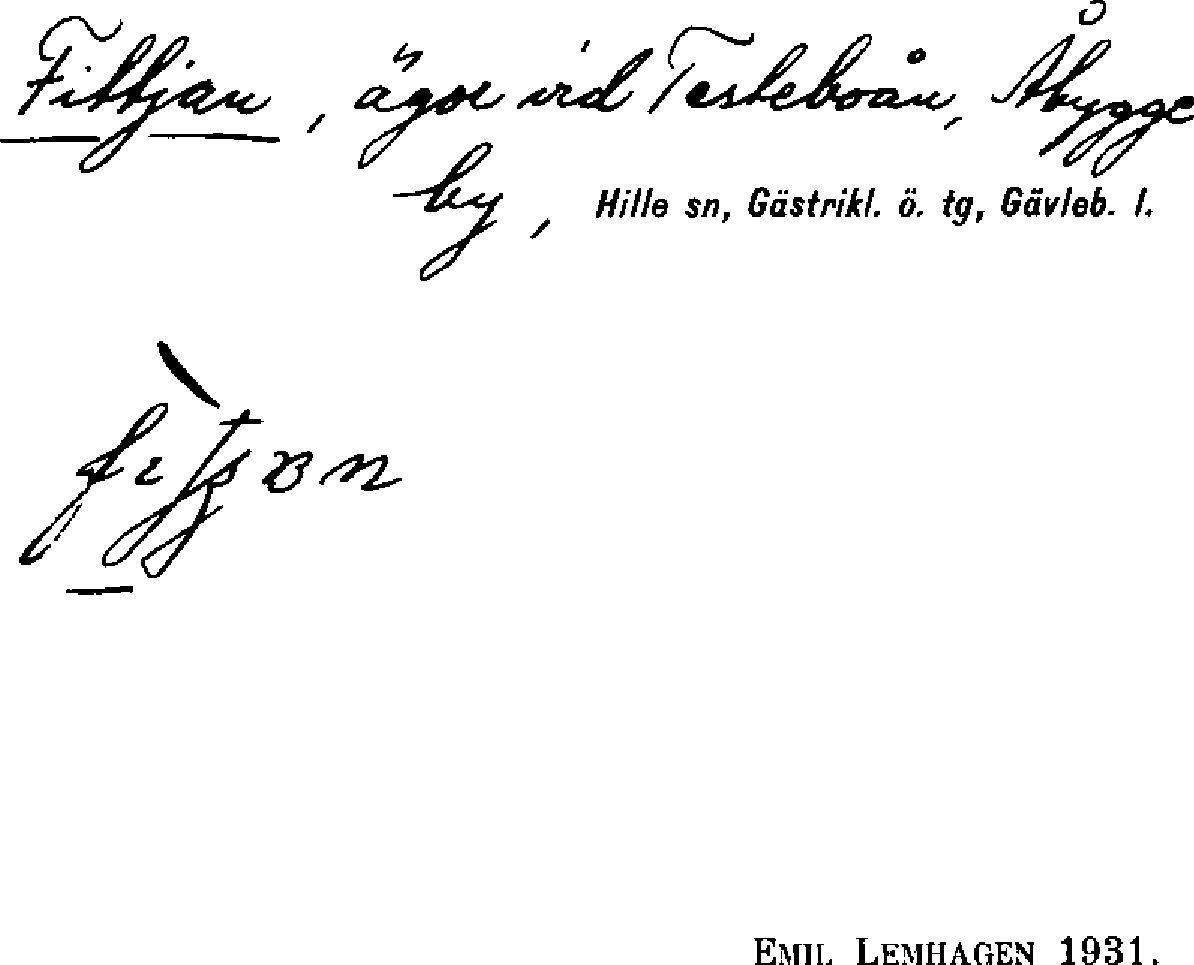 Fittjan, ägor vid Testeboån, Åbygge
by, Hille sn, Gästrikl. ö. tg, Gävleb. l.
EMIL LEMHAGEN 1931.